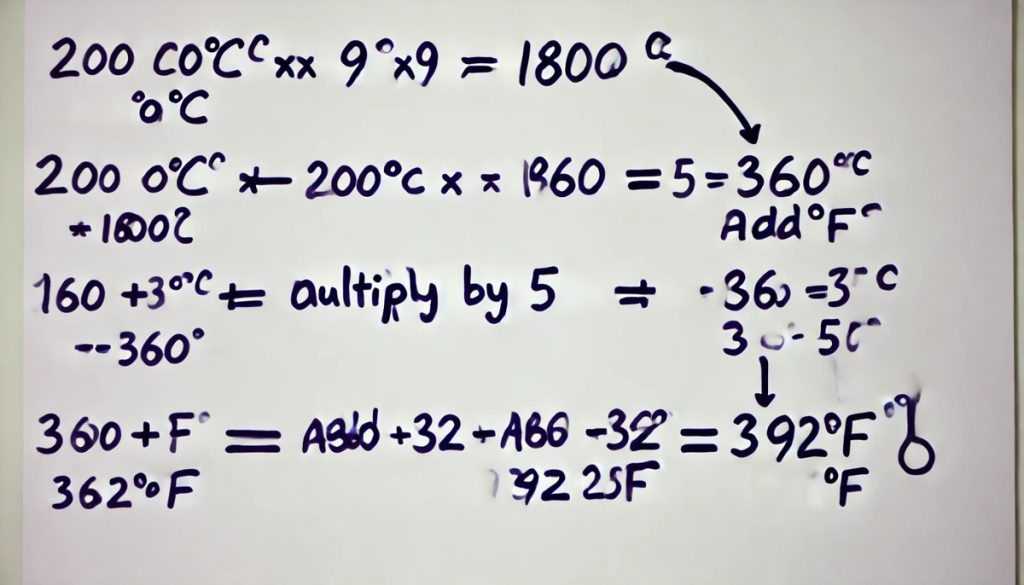 200 CO°C xx 9°x9 = 1800
°o°C
200 0°C 200°c x x 1960 = 5 = 360°C
+ 1800C Add °F
160 +3°°C = aultiply by 5 = -360 =3 C
--360° 3 - 5
360 + F = +32 - = 392°F
362°° F 392 25F °F